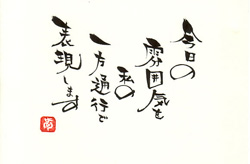 今日の
雰囲気を
私の
一方通行で
表現します